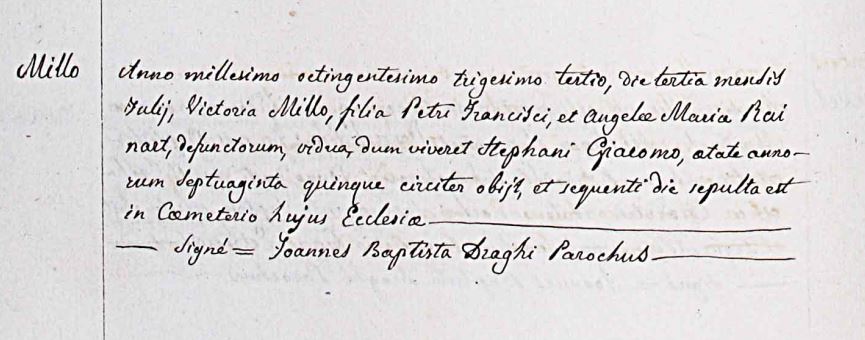 Millo
Anno millesimo octingentesimo trigesimo tertio, die tertia mensis
Julij, Victoria Millo, filia Petri Francisci, et Angelæ Mariæ Rai
nart, defunctorum, vidua, dum viveret Stephani Giacomo, ætate anno-
rum septuaginta quinque circiter obijt, et sequenti die sepulta est
in Cœmeterio hujus Ecclesiæ
Signé = Joannes Baptista Draghi Parochus